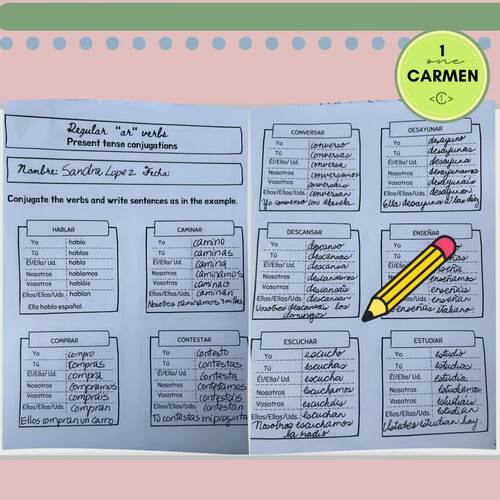 1
one
CARMEN
<C>
Regular "ar" verbs
Present tense conjugations
Nombre: Sandra Lopez Fecha:
Conjugate the verbs and write sentences as in the example.
HABLAR
Yo hablo
Tú hablas
Él/Ella/ Ud. habla
Nosotros hablamos
Vosotros habláis
Ellos/Ellas/Uds. hablan
Ella habla español.
CAMINAR
Yo camino
Tú caminas
Él/Ella/ Ud. camina
Nosotros caminamos
Vosotros camináis
Ellos/Ellas/Uds. caminan
Nosotros caminamos 3 millas
COMPRAR
Yo compro
Tú compras
Él/Ella/ Ud. compra
Nosotros compramos
Vosotros compráis
Ellos/Ellas/Uds. compran
Ellos compran un carro
CONTESTAR
Yo contesto
Tú contestas
Él/Ella/ Ud. contesta
Nosotros contestamos
Vosotros contestáis
Ellos/Ellas/Uds. contestan
Tú contestas mi pregunta
CONVERSAR
Yo converso
Tú conversas
Él/Ella/ Ud. conversa
Nosotros conversamos
Vosotros conversáis
Ellos/Ellas/Uds. conversan
Yo converso con abuela
DESAYUNAR
Yo desayuno
Tú desayunas
Él/Ella/ Ud. desayuna
Nosotros desayunamos
Vosotros desayunáis
Ellos/Ellas/Uds. desayunan
Ella desayuna a las diez
DESCANSAR
Yo descanso
Tú descansas
Él/Ella/ Ud. descansa
Nosotros descansamos
Vosotros descansáis
Ellos/Ellas/Uds. descansan
Vosotros descansáis los
domingos
ENSEÑAR
Yo
Tú
enseñamos
enseñáis
enseñan
enseñas italiano.
ESCUCHAR
Yo escucho
Tú escuchas
Él/Ella/ Ud. escucha
Nosotros escuchamos
Vosotros escucháis
Ellos/Ellas/Uds. escuchan
Nosotros escuchamos
la radio
ESTUDIAR
Yo estudio
Tú estudias
Él/Ella/ Ud. estudia
Nosotros estudiamos
Vosotros estudiáis
Ellos/Ellas/Uds. estudian
Ustedes estudian hoy.